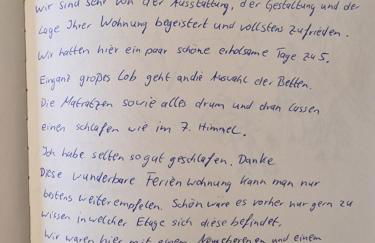 Wir sind sehr von der Ausstattung, der Gestaltung und der
Lage Ihrer Wohnung begeistert und vollstens zufrieden.
Wir hatten hier ein paar schöne erholsame Tage zu 5.
Ein ganz großes Lob geht an die Auswahl der Betten.
Die Matratzen sowie alles drum und dran lassen
einen schlafen wie im 7. Himmel.
Ich habe selten so gut geschlafen. Danke
Diese wunderbare Ferienwohnung kann man nur
bestens weiterempfelen. Schön wäre es vorher nur gern zu
wissen in welcher Etage sich diese befindet.
Wir waren hier mit einem und einem